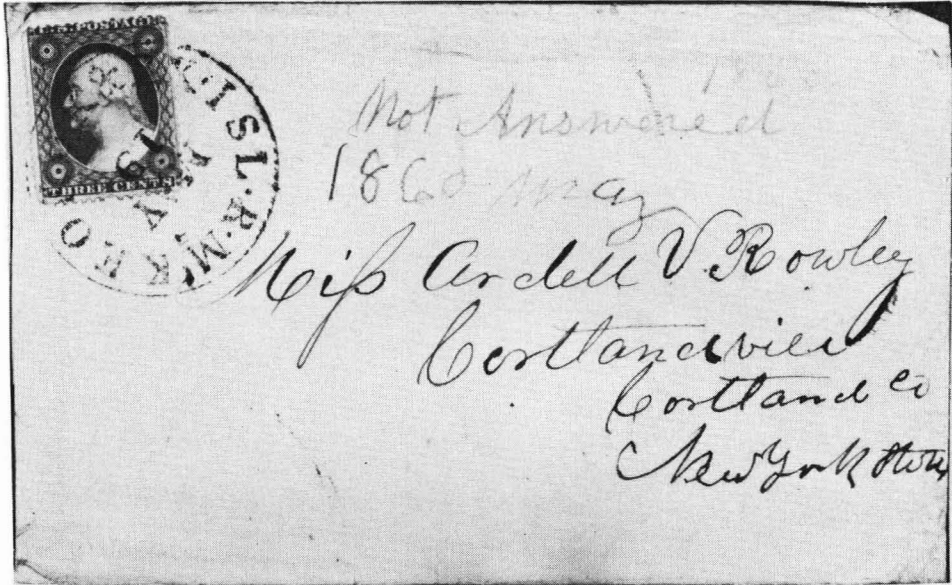 THREE CENTS
& R. ISL. R. M. K. E. O.
Not Answered
1860 May
Miss Ardell V. Rowley
Cortlandville
Cortland Co
New York State